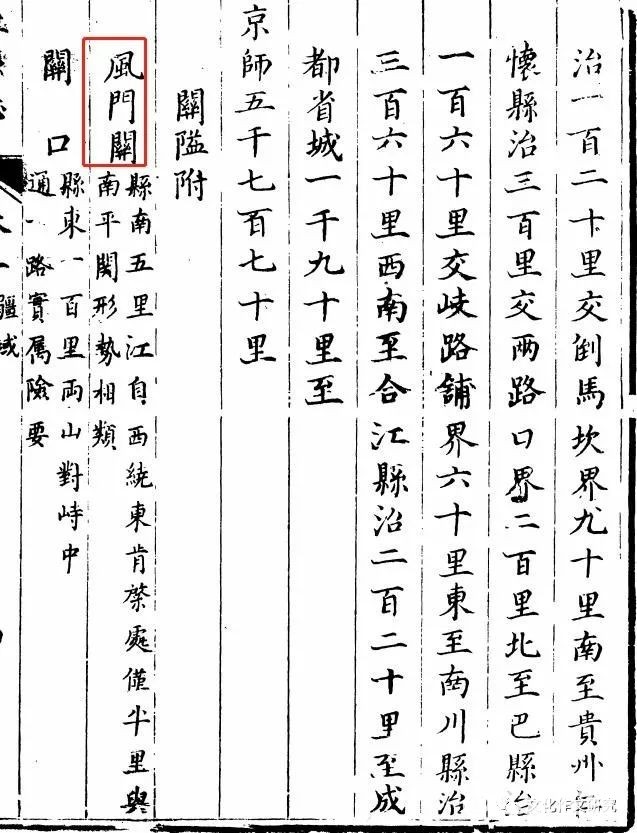 治一百二十里交倒馬坎界九十里南至貴州
懷縣治三百里交两路口界二百里北至巴縣治
一百六十里交岐路舖界六十里東至南川縣治
三百六十里西南至合江縣治二百二十里至成
都省城一千九十里至
京師五千七百七十里
關隘附
風門關
縣南五里江自西繞東肯綮處僅半里與
南平関形勢相類
關口
縣東一百里两山對峙中
通一路實属險要
疆域
文化作文研究